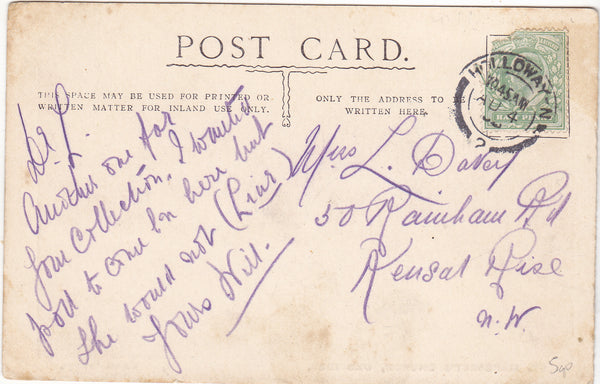 POST CARD.
THIS SPACE MAY BE USED FOR PRINTED OR
WRITTEN MATTER FOR INLAND USE ONLY.
ONLY THE ADDRESS TO BE
WRITTEN HERE.
HOLLOWAY. N
10.45 AM
AU 4
2
HALFPENNY
Another one for
your Collection. I wanted
you to come on here but
she would not (Liar)
Yours Will.
Miss L. Davey
50 Rainham Rd
Kensal Rise
N.W.